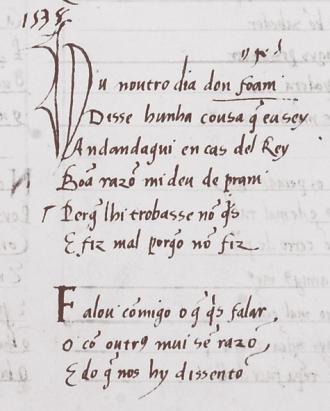 1538
Vu noutro dia don foam
Disse hunha cousa q̃ eu sey
Andandaqui en cas del Rey
Bõa razõ mi deu de prami
Perq̃ lhi trobasse nõ q̃s
E fiz mal porq̃o nõ fiz
Falou cõmigo o q̃ q̃s falar
o cõ outrꝯ mui sẽ razõ
E do q̃ nos hy dissentõ